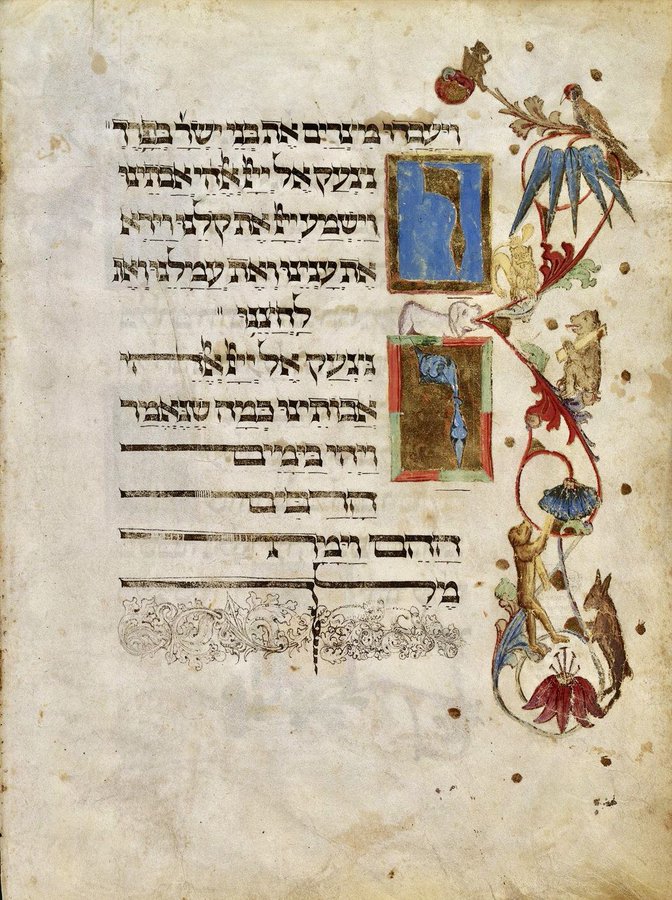 ויעבדו מצרים את בני ישר׳ בפרך
ונצעק אל ייי אלהי אבתינו
וישמע ייי את קלנו וירא
את ענינו ואת עמלנו ואת
לחצנו
ונצעק אל ייי אלהי
אבותינו כמה שנאמר
ויהי בימים
הרבים
ההם וימת
מלך